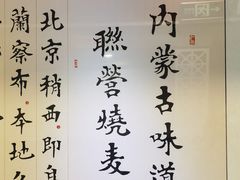 内蒙古味道
聯營燒麦
北京稍西即
蘭察布本地